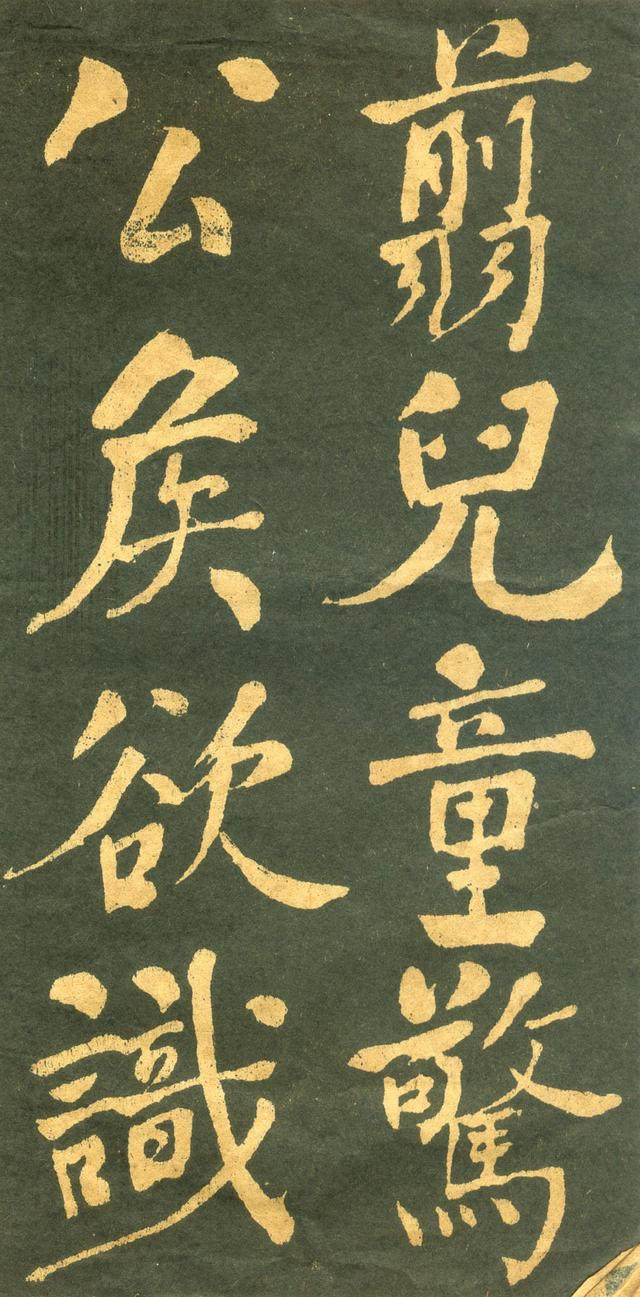 翦兒童驚
公侯欲識